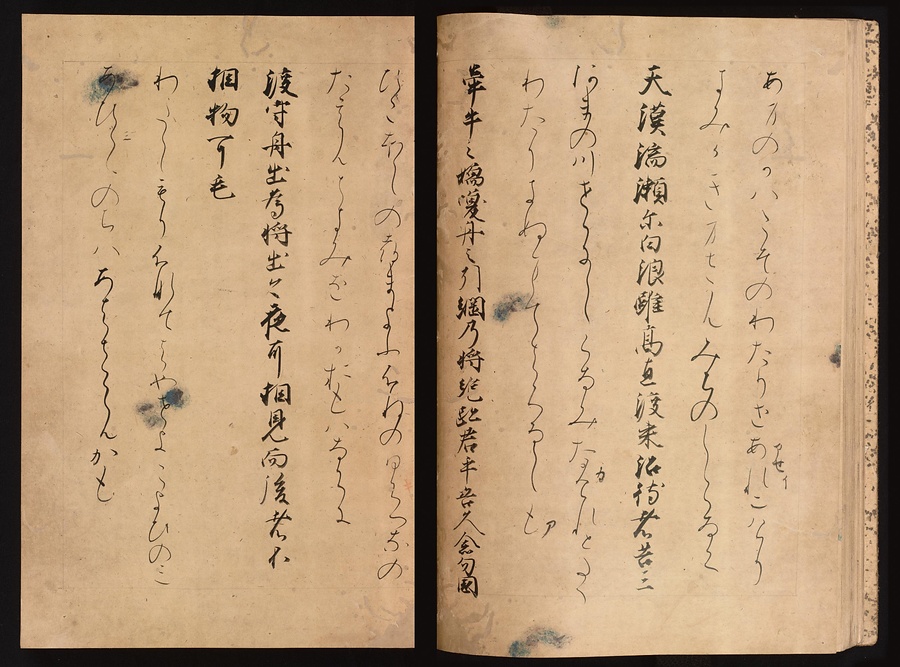 あまのかはこそのわたりはあれにけり
きみかきまさんみちのしらなく
天漢湍瀬尓白浪雖高直渡来沼待者苦三
あまの川せゝにしらなみたかけれとたゝ
わたりきぬまてはくるしも
牽牛之嬬喚舟之引綱乃将絶跡君乎吾久念勿國
ひこほしのつまよふふねのひくつなの
たえんときみをわかおもはなくに
渡守舟出為将出今夜耳相見而後者不
相物可毛
わたしもりふねこよひのみ
あひみてのちはあはさらんかも